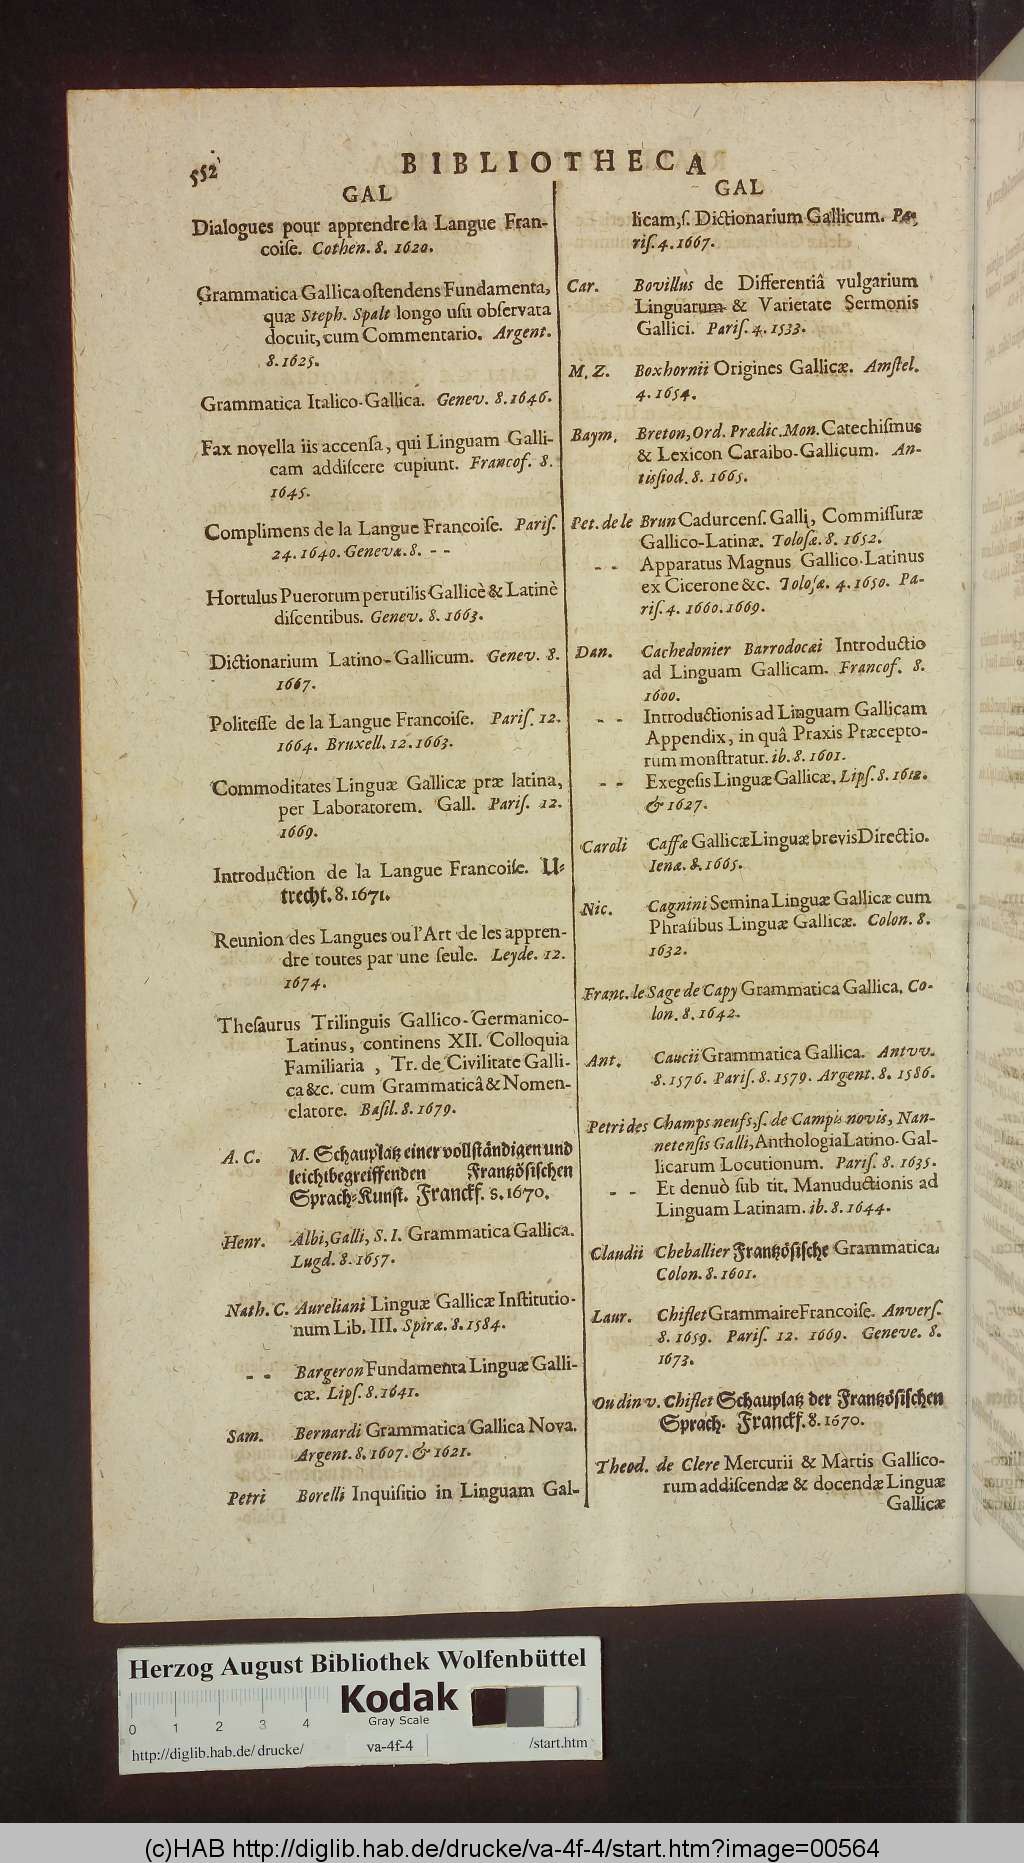 552
BIBLIOTHECA
GAL
Dialogues pour apprendre la Langue Fran-
coiſe. Cothen. 8. 1620.
Grammatica Gallica oſtendens Fundamenta,
quæ Steph. Spalt longo uſu obſervata
docuit, cum Commentario. Argent.
8. 1625.
Grammatica Italico-Gallica. Genev. 8. 1646.
Fax novella iis accenſa, qui Linguam Galli-
cam addiſcere cupiunt. Francof. 8.
1645.
Complimens de la Langue Francoiſe. Pariſ.
24. 1640. Genevæ. 8. - -
Hortulus Puerorum perutilis Gallicè & Latinè
diſcentibus. Genev. 8. 1663.
Dictionarium Latino-Gallicum. Genev. 8.
1667.
Politeſſe de la Langue Francoiſe. Pariſ. 12.
1664. Bruxell. 12. 1663.
Commoditates Linguæ Gallicæ præ latina,
per Laboratorem. Gall. Pariſ. 12.
1669.
Introduction de la Langue Francoiſe. U-
trecht. 8. 1671.
Reunion des Langues ou l'Art de les appren-
dre toutes par une ſeule. Leyde. 12.
1674.
Theſaurus Trilinguis Gallico-Germanico-
Latinus, continens XII. Colloquia
Familiaria, Tr. de Civilitate Galli-
ca &c. cum Grammaticâ & Nomen-
clatore. Baſil. 8. 1679.
A. C. M. Schauplatz einer vollſtändigen und
leichtbegreiffenden Frantzöſiſchen
Sprach-Kunſt. Franckf. 8. 1670.
Henr. Albi, Galli, S. I. Grammatica Gallica.
Lugd. 8. 1657.
Nath. C. Aureliani Linguæ Gallicæ Inſtitutio-
num Lib. III. Spiræ. 8. 1584.
- - Bargeron Fundamenta Linguæ Galli-
cæ. Lipſ. 8. 1641.
Sam. Bernardi Grammatica Gallica Nova.
Argent. 8. 1607. & 1621.
Petri Borelli Inquiſitio in Linguam Gal-
GAL
licam, ſ. Dictionarium Gallicum. Pa-
riſ. 4. 1667.
Car. Bovillus de Differentiâ vulgarium
Linguarum & Varietate Sermonis
Gallici. Pariſ. 4. 1533.
M. Z. Boxhornii Origines Gallicæ. Amſtel.
4. 1654.
Baym. Breton, Ord. Prædic. Mon. Catechiſmus
& Lexicon Caraibo-Gallicum. An-
tiſſiod. 8. 1665.
Pet. de le Brun Cadurcenſ. Galli, Commiſſuræ
Gallico-Latinæ. Toloſæ. 8. 1652.
- - Apparatus Magnus Gallico-Latinus
ex Cicerone &c. Toloſæ. 4. 1650. Pa-
riſ. 4. 1660. 1669.
Dan. Cachedonier Barrodocæi Introductio
ad Linguam Gallicam. Francof. 8.
1600.
- - Introductionis ad Linguam Gallicam
Appendix, in quâ Praxis Præcepto-
rum monſtratur. ib. 8. 1601.
- - Exegeſis Linguæ Gallicæ. Lipſ. 8. 1612.
& 1627.
Caroli Caffæ Gallicæ Linguæ brevis Directio.
Ienæ. 8. 1665.
Nic. Cagnini Semina Linguæ Gallicæ cum
Phraſibus Linguæ Gallicæ. Colon. 8.
1632.
Franc. le Sage de Capy Grammatica Gallica. Co-
lon. 8. 1642.
Ant. Caucii Grammatica Gallica. Antvv.
8. 1576. Pariſ. 8. 1579. Argent. 8. 1586.
Petri des Champs neufs, ſ. de Campis novis, Nan-
netenſis Galli, Anthologia Latino-Gal-
licarum Locutionum. Pariſ. 8. 1635.
- - Et denuò ſub tit. Manuductionis ad
Linguam Latinam. ib. 8. 1644.
Claudii Cheballier Frantzöſiſche Grammatica.
Colon. 8. 1601.
Laur. Chiflet Grammaire Francoiſe. Anverſ.
8. 1659. Pariſ. 12. 1669. Geneve. 8.
1673.
Oudin v. Chiflet Schauplatz der Frantzöſiſchen
Sprach. Franckf. 8. 1670.
Theod. de Clere Mercurii & Martis Gallico-
rum addiſcendæ & docendæ Linguæ
Gallicæ
Herzog August Bibliothek Wolfenbüttel
0 1 2 3 4
Kodak
Gray Scale
http://diglib.hab.de/drucke/
va-4f-4
/start.htm
(c)HAB http://diglib.hab.de/drucke/va-4f-4/start.htm?image=00564